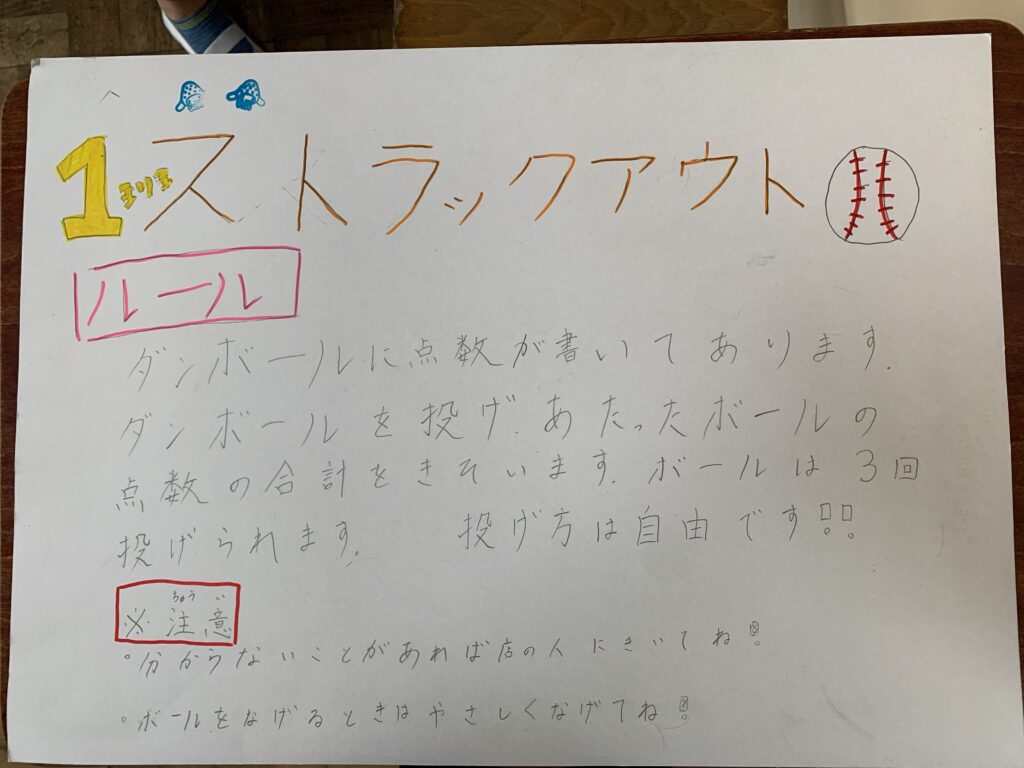 1まりまストラックアウト
ルール
ダンボールに点数が書いてあります.
ダンボールを投げ.あたったボールの
点数の合計をきそいます.ボールは3回
投げられます.　投げ方は自由です!!
ちゅうい
※注意
°分からないことがあれば店の人にきいてね!
°ボールをなげるときはやさしくなげてね!